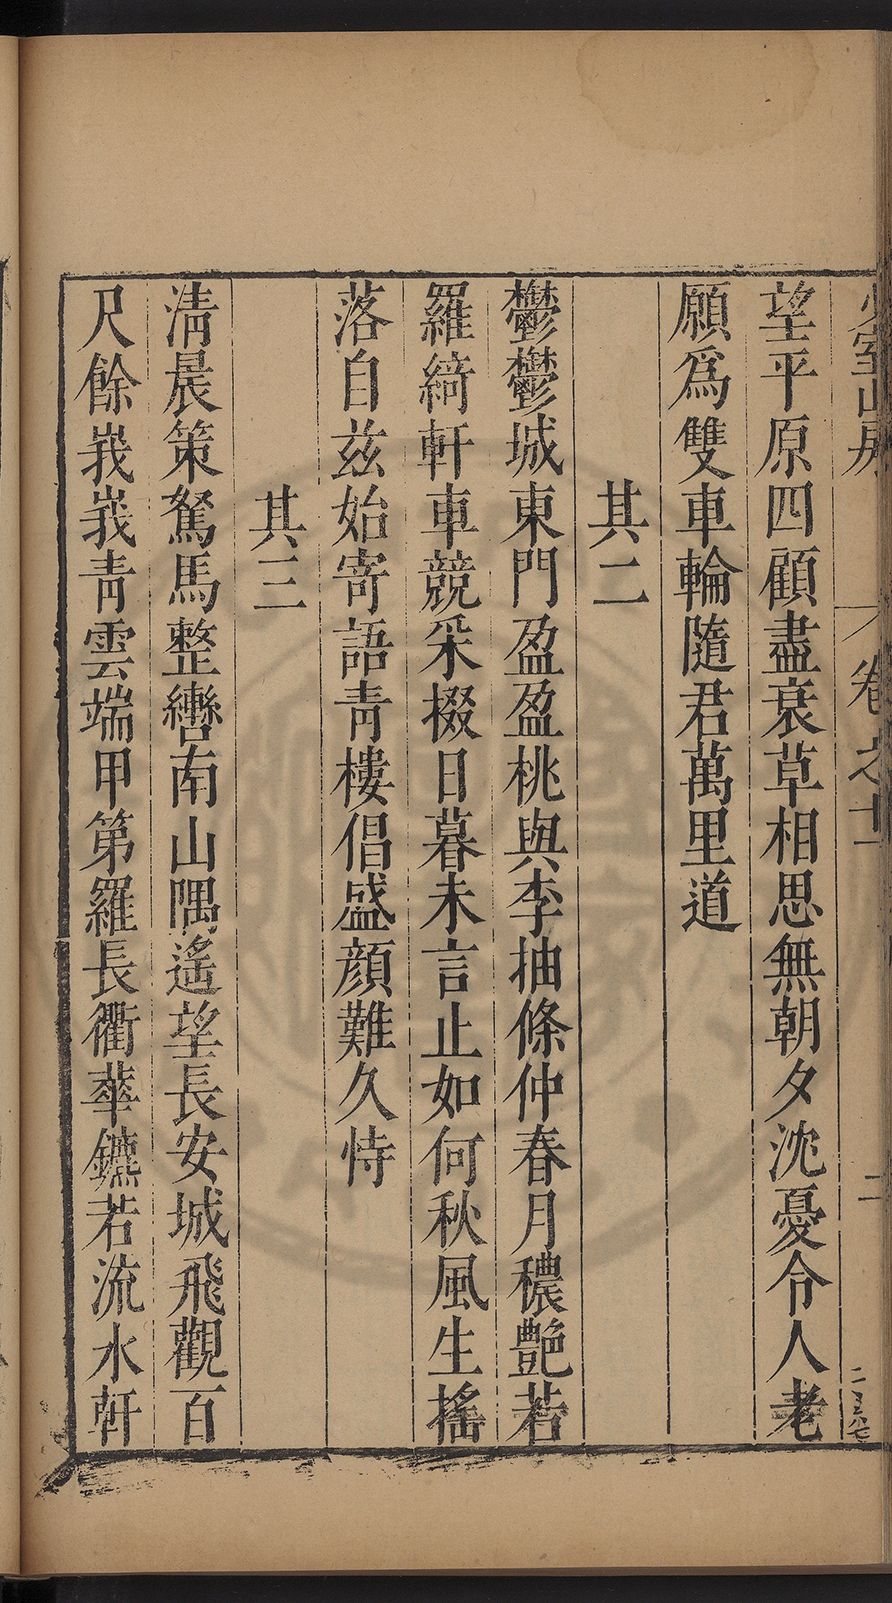 少室山房 卷之十二 二
望平原四顧盡衰草相思無朝夕沈憂令人老
願爲雙車輪隨君萬里道
其二
鬱鬱城東門盈盈桃與李抽條仲春月穠艶若
羅綺軒車競采掇日暮未言止如何秋風生搖
落自茲始寄語青樓倡盛顔難久恃
其三
淸晨策駑馬整轡南山隅遙望長安城飛觀百
尺餘峩峩青雲端甲第羅長衢華鑣若流水軒